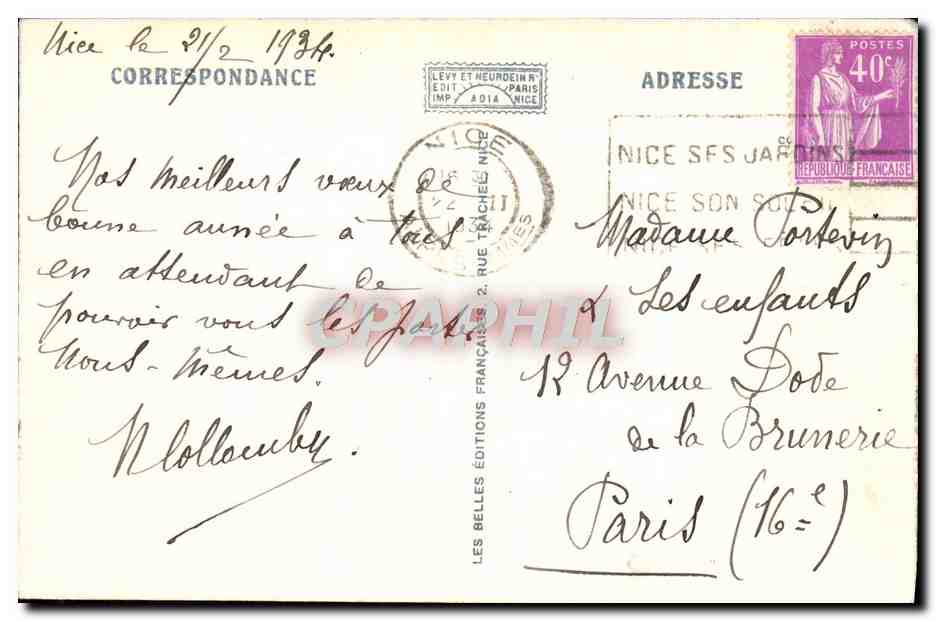 Nice le 21/2 1934.
CORRESPONDANCE
LEVY ET NEURDEIN Rs
EDIT PARIS
IMP ADIA NICE
ADRESSE
POSTES
40c
REPUBLIQUE FRANÇAISE
NICE
II
34
NICE SES JARDINS
NICE SON SOLEIL
Nos meilleurs vœux de
bonne année à tous
en attendant de
pouvoir vous les porter
nous-mêmes.
LES BELLES ÉDITIONS FRANÇAISES, 2, RUE TRACHEL, NICE
Madame Portevin
& Les enfants
12 Avenue Dode
de la Brunerie
Paris (16e)
CPAPHIL